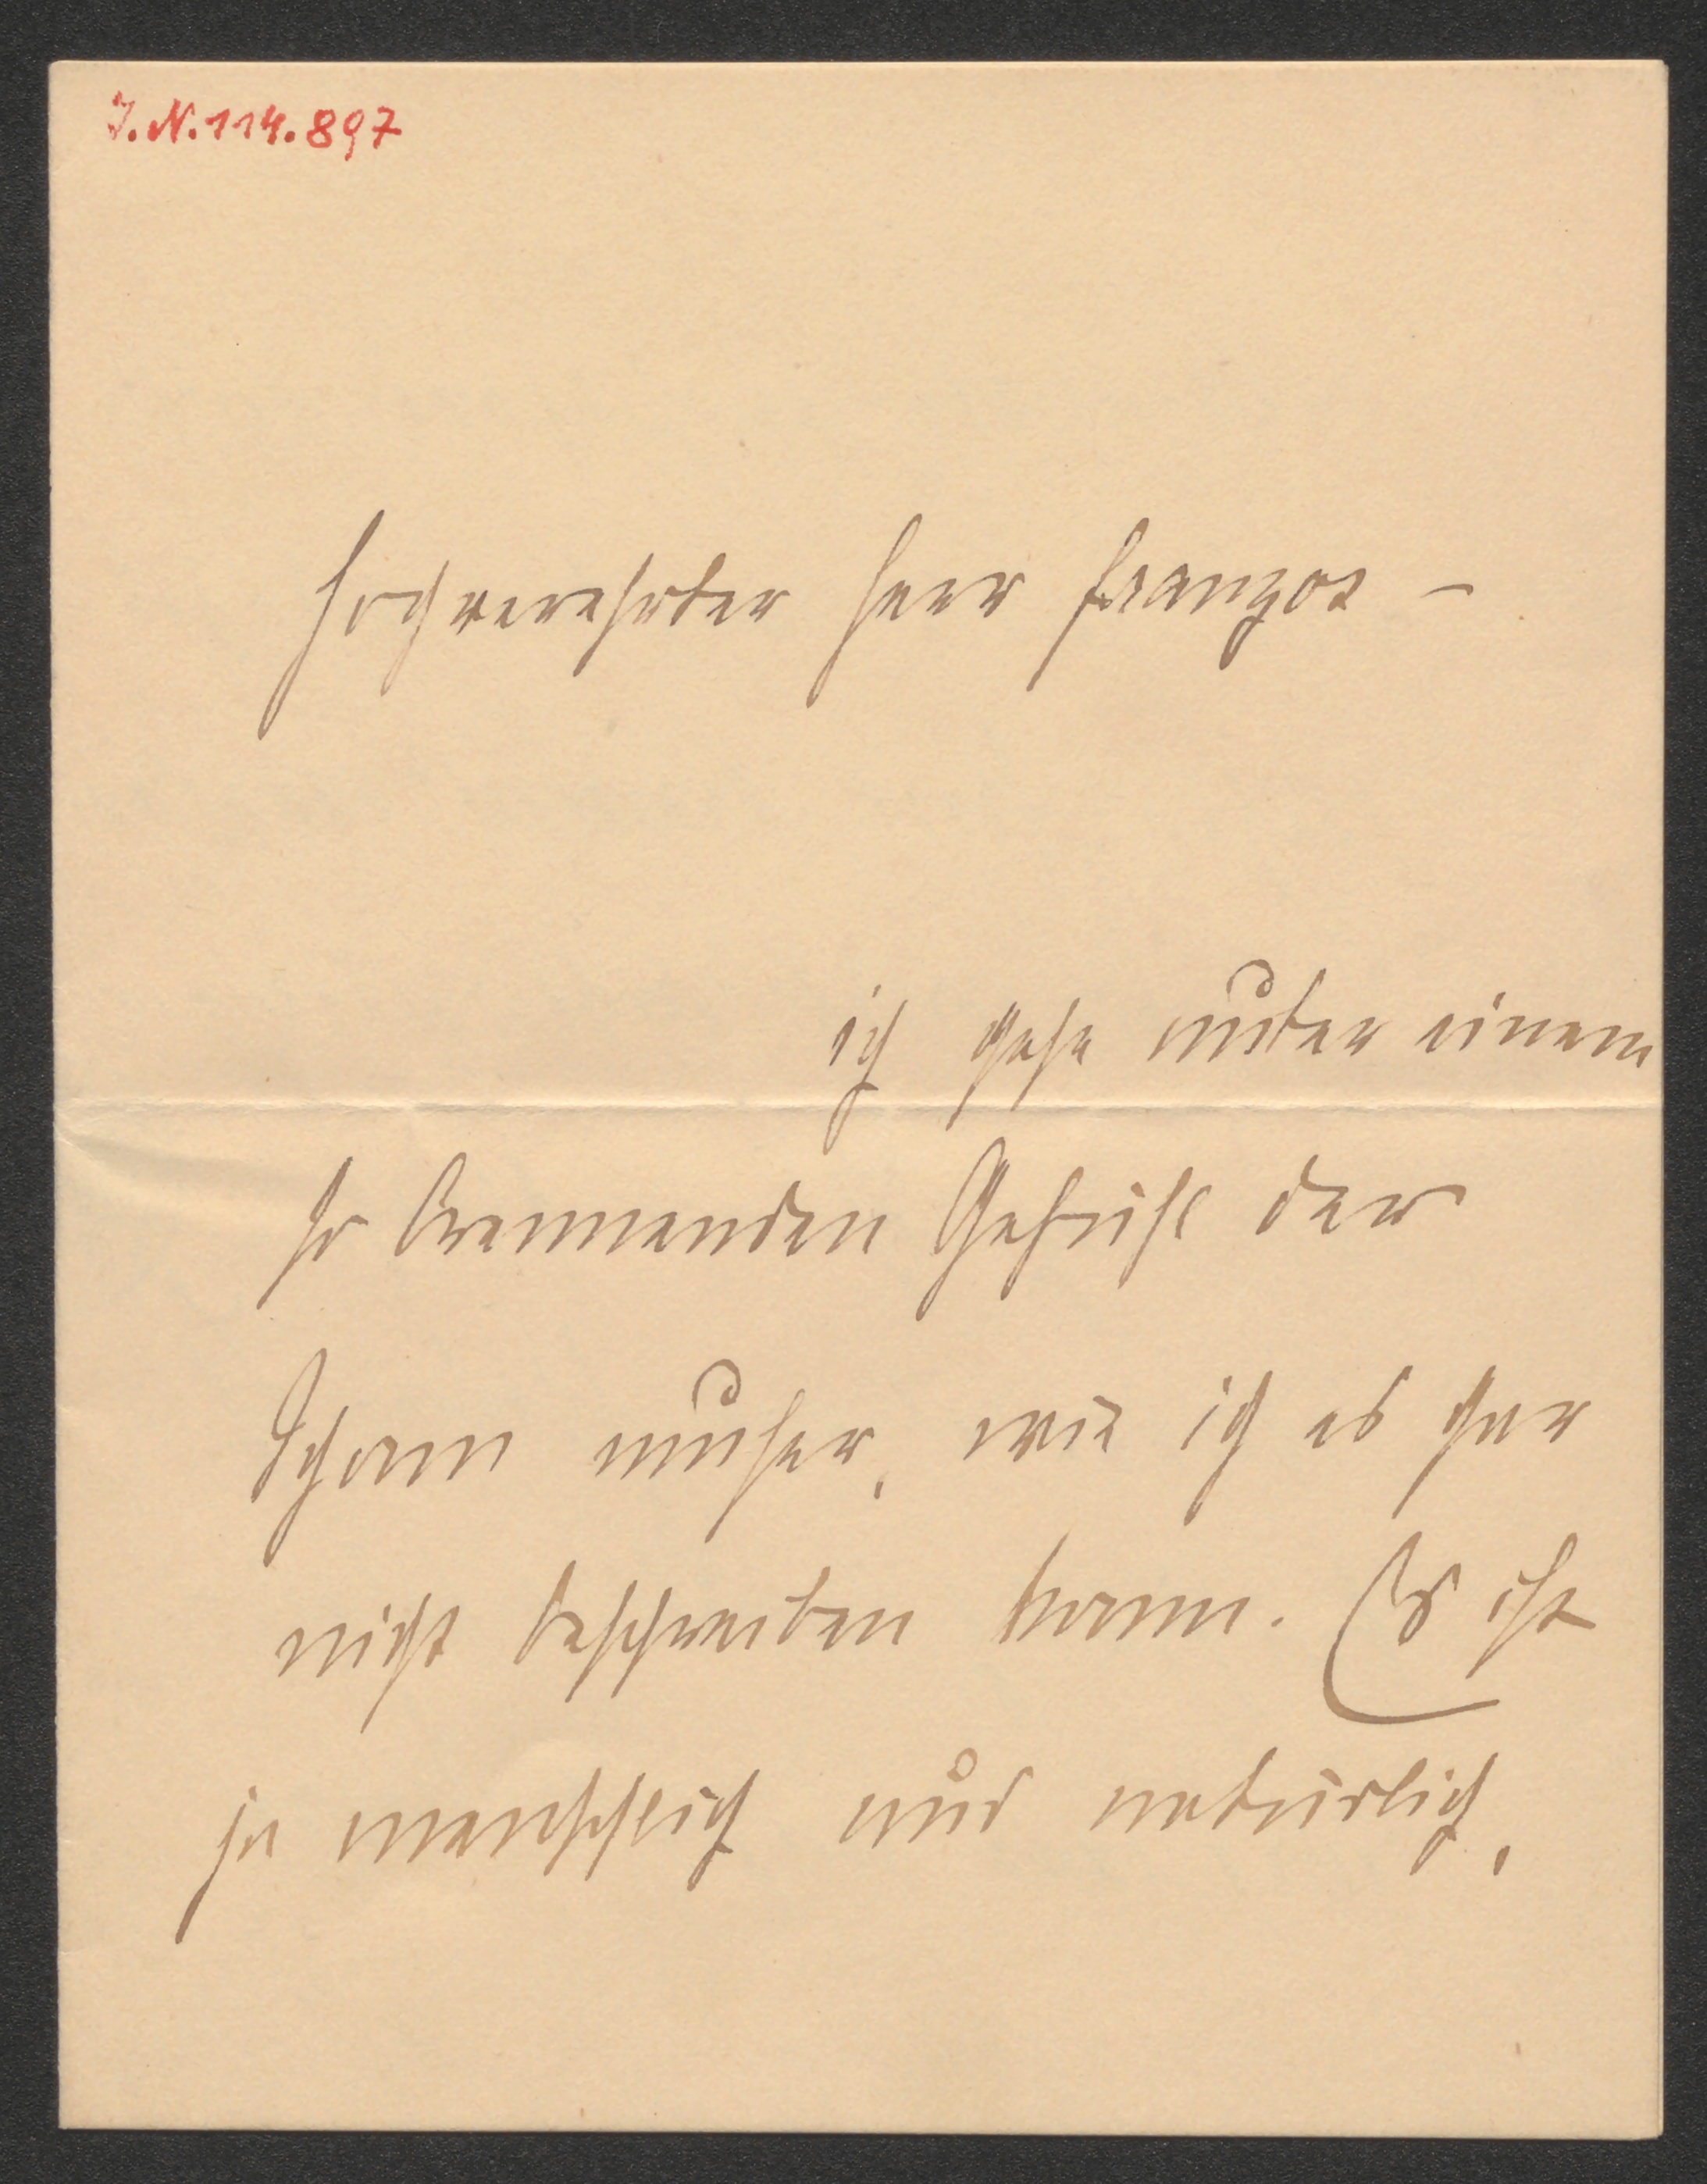 I. N. 114.897
Hochverehrter Herr Franzos –
ich gehe unter einem
so brennenden Gefühl der
Scham umher, wie ich es gar
nicht beschreiben kann. Es ist
ja menschlich und natürlich,